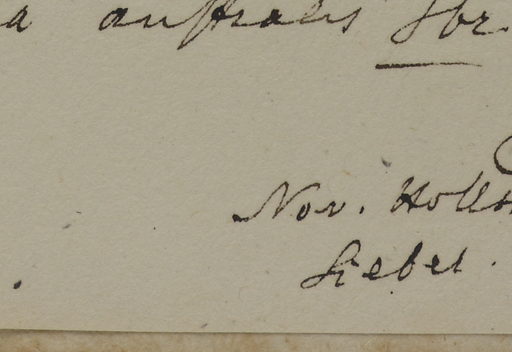 a australis Sbr.
Nov. Holl
Siebel.